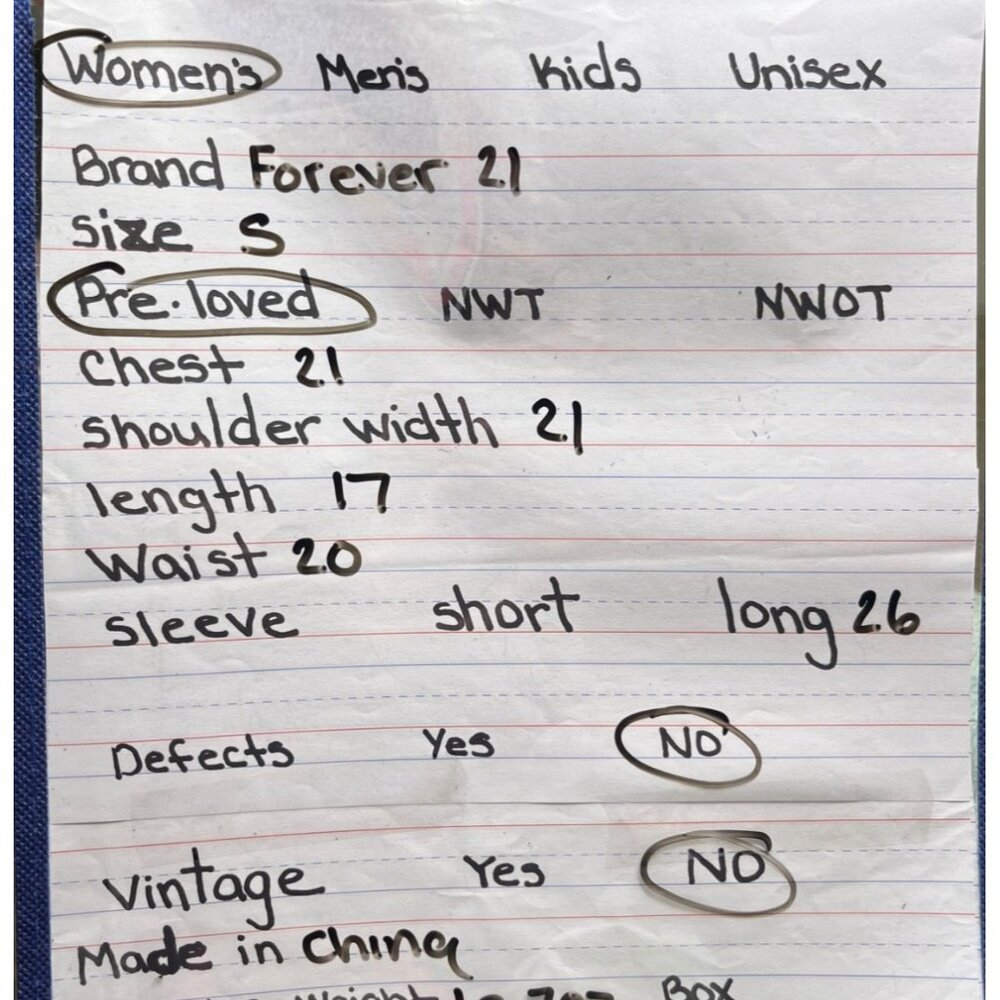 Women's Men's Kids Unisex
Brand Forever 21
size S
Pre-loved NWT NWOT
Chest 21
shoulder width 21
length 17
Waist 20
sleeve short long 26
Defects Yes NO
Vintage Yes NO
Made in China
Weight Box